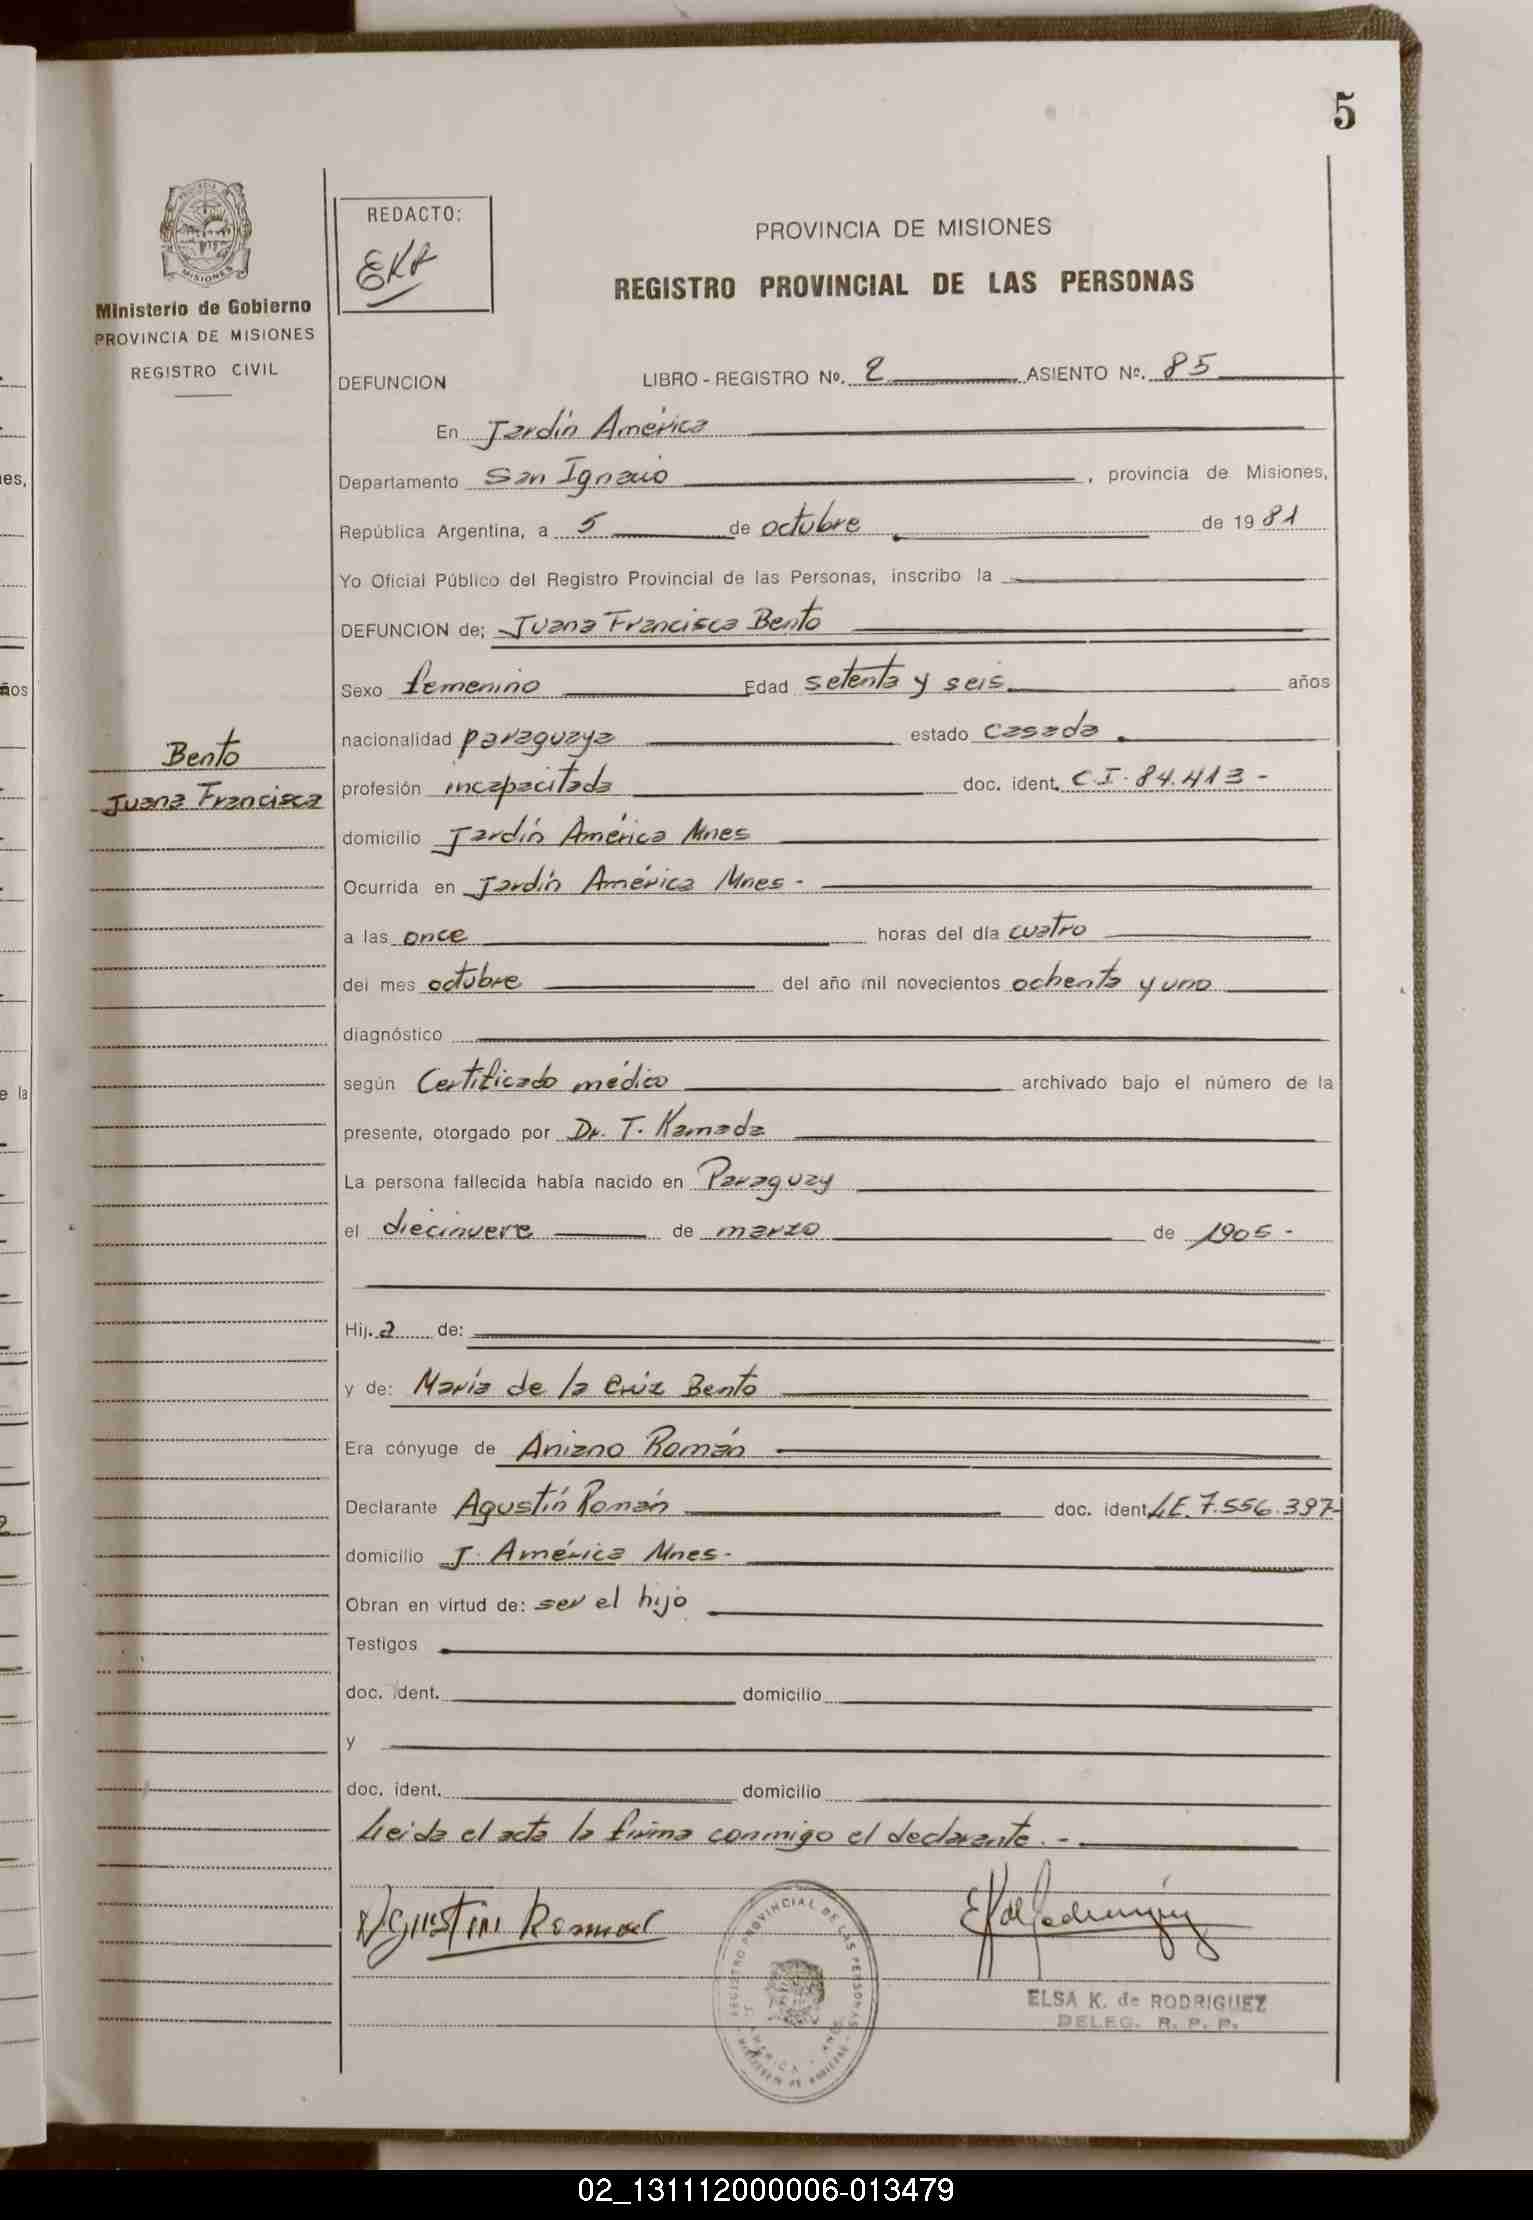 5
PROVINCIA DE
MISIONES
Ministerio de Gobierno
PROVINCIA DE MISIONES
REGISTRO CIVIL
REDACTO:
EKR
PROVINCIA DE MISIONES
REGISTRO PROVINCIAL DE LAS PERSONAS
DEFUNCION LIBRO - REGISTRO Nº. 2 ASIENTO Nº. 85
En Jardín América
Departamento San Ignacio, provincia de Misiones,
República Argentina, a 5 de octubre de 1981
Yo Oficial Público del Registro Provincial de las Personas, inscribo la
DEFUNCION de; Juana Francisca Bento
Sexo femenino Edad setenta y seis años
Bento
Juana Francisca
nacionalidad paraguaya estado casada.
profesión incapacitada doc. ident. C.I. 84.413-
domicilio Jardín América Mnes
Ocurrida en Jardín América Mnes-
a las once horas del día cuatro
del mes octubre del año mil novecientos ochenta y uno
diagnóstico
según Certificado médico archivado bajo el número de la
presente, otorgado por Dr. T. Kamada
La persona fallecida había nacido en Paraguay
el diecinueve de marzo de 1905-
Hij.a de:
y de: María de la Cruz Bento
Era cónyuge de Aniano Román
Declarante Agustín Román doc. ident. L.E. 7.556.397-
domicilio J. América Mnes-
Obran en virtud de: ser el hijo
Testigos
doc. ident. domicilio
y
doc. ident. domicilio
Leida el acta la firma conmigo el declarante.-
Agustin Roman
REGISTRO PROVINCIAL DE LAS PERSONAS
ELSA K. de RODRIGUEZ
DELEG. R. P. P.
ies,
años
e la
02_131112000006-013479